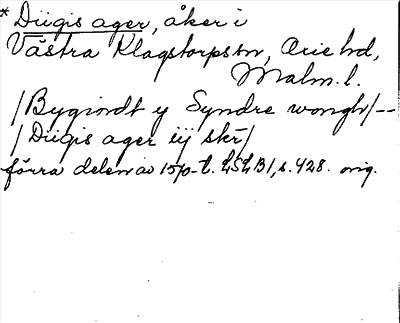 * Diigis ager, åker i
Västra Klagstorps sn, Oxie hd,
Malm. l.
/Bygiordt y Syndre wongh/--
/Diigis ager iij skr/
förra delen av 1570-t. LSLB1, s. 428. orig.